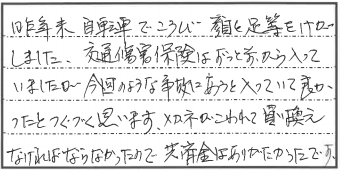 昨年末 自転車でころび 顔と足等をけが
しました、交通傷害保険はずっと前から入って
いましたが今回のような事故に会うと入っていて良か
ったとつくづく思います、メガネがこわれて買い換え
なければならなかったので共済金はありがたかったです。